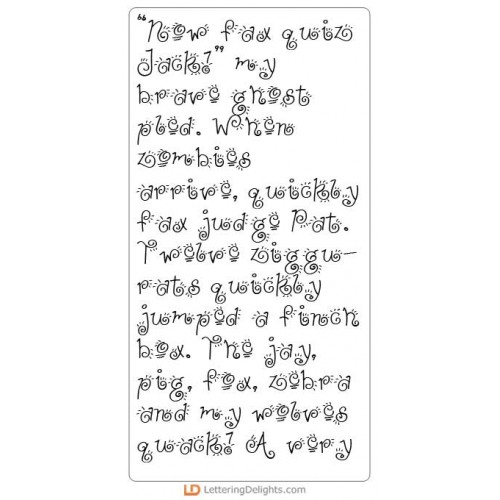 “Now fax quiz
Jack!” my
brave ghost
pled. When
zombies
arrive, quickly
fax judge Pat.
Twelve ziggu-
rats quickly
jumped a finch
box. The jay,
pig, fox, zebra
and my wolves
quack! A very
LD LetteringDelights.com